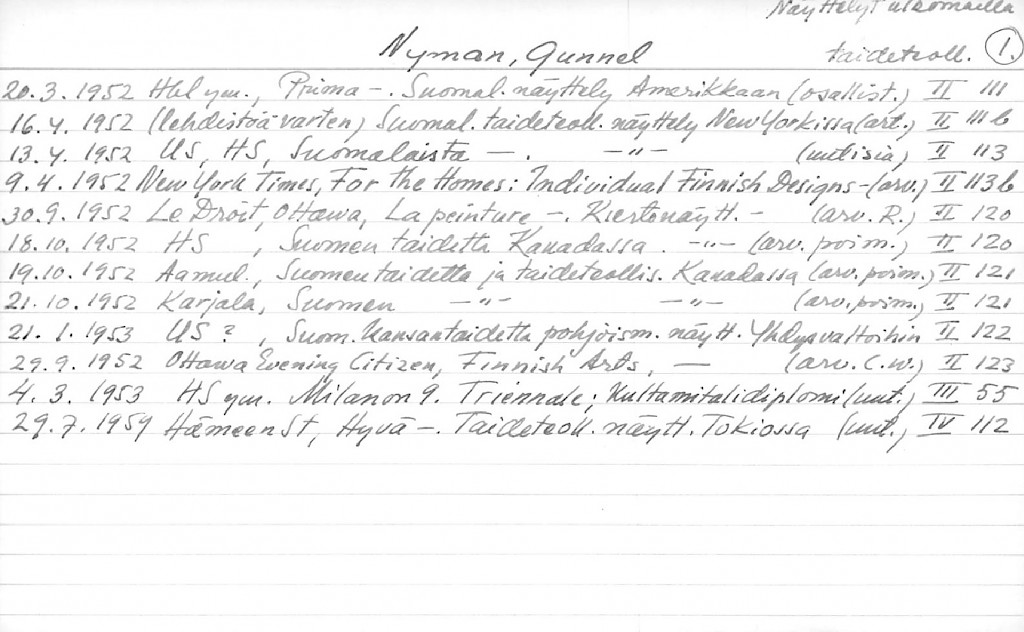 Näyttelyt ulkomailla
Nyman, Gunnel taideteoll. 1.
20.3.1952 Hbl ym., Prima -. Suomal. näyttely Amerikkaan (osallist.) II 111
16.4.1952 (lehdistöä varten) Suomal. taideteoll. näyttely New Yorkissa (art.) II 111b
13.4.1952 US, HS, Suomalaista -. -"- (uutisia) II 113
9.4.1952 New York Times, For the Homes: Individual Finnish Designs - (arv.) II 113b
30.9.1952 Le Droit, Ottawa, La peinture -. Kiertonäytt. - (arv. R.) II 120
18.10.1952 HS , Suomen taidetta Kanadassa. -"- (arv. poim.) II 120
19.10.1952 Aamul., Suomen taidetta ja taideteollis. Kanadassa (arv. poim.) II 121
21.10.1952 Karjala, Suomen -"- -"- (arv. poim.) II 121
21.1.1953 US ? , Suom. kansantaidetta pohjoism. näytt. Yhdysvaltoihin II 122
29.9.1952 Ottawa Evening Citizen, Finnish Arts, - (arv. C.W.) II 123
4.3.1953 HS ym. Milanon 9. Triennale; Kultamitalidiplomi (uut.) III 55
29.7.1959 HämeenSt, Hyvä -. Taideteoll. näytt. Tokiossa (uut.) IV 112